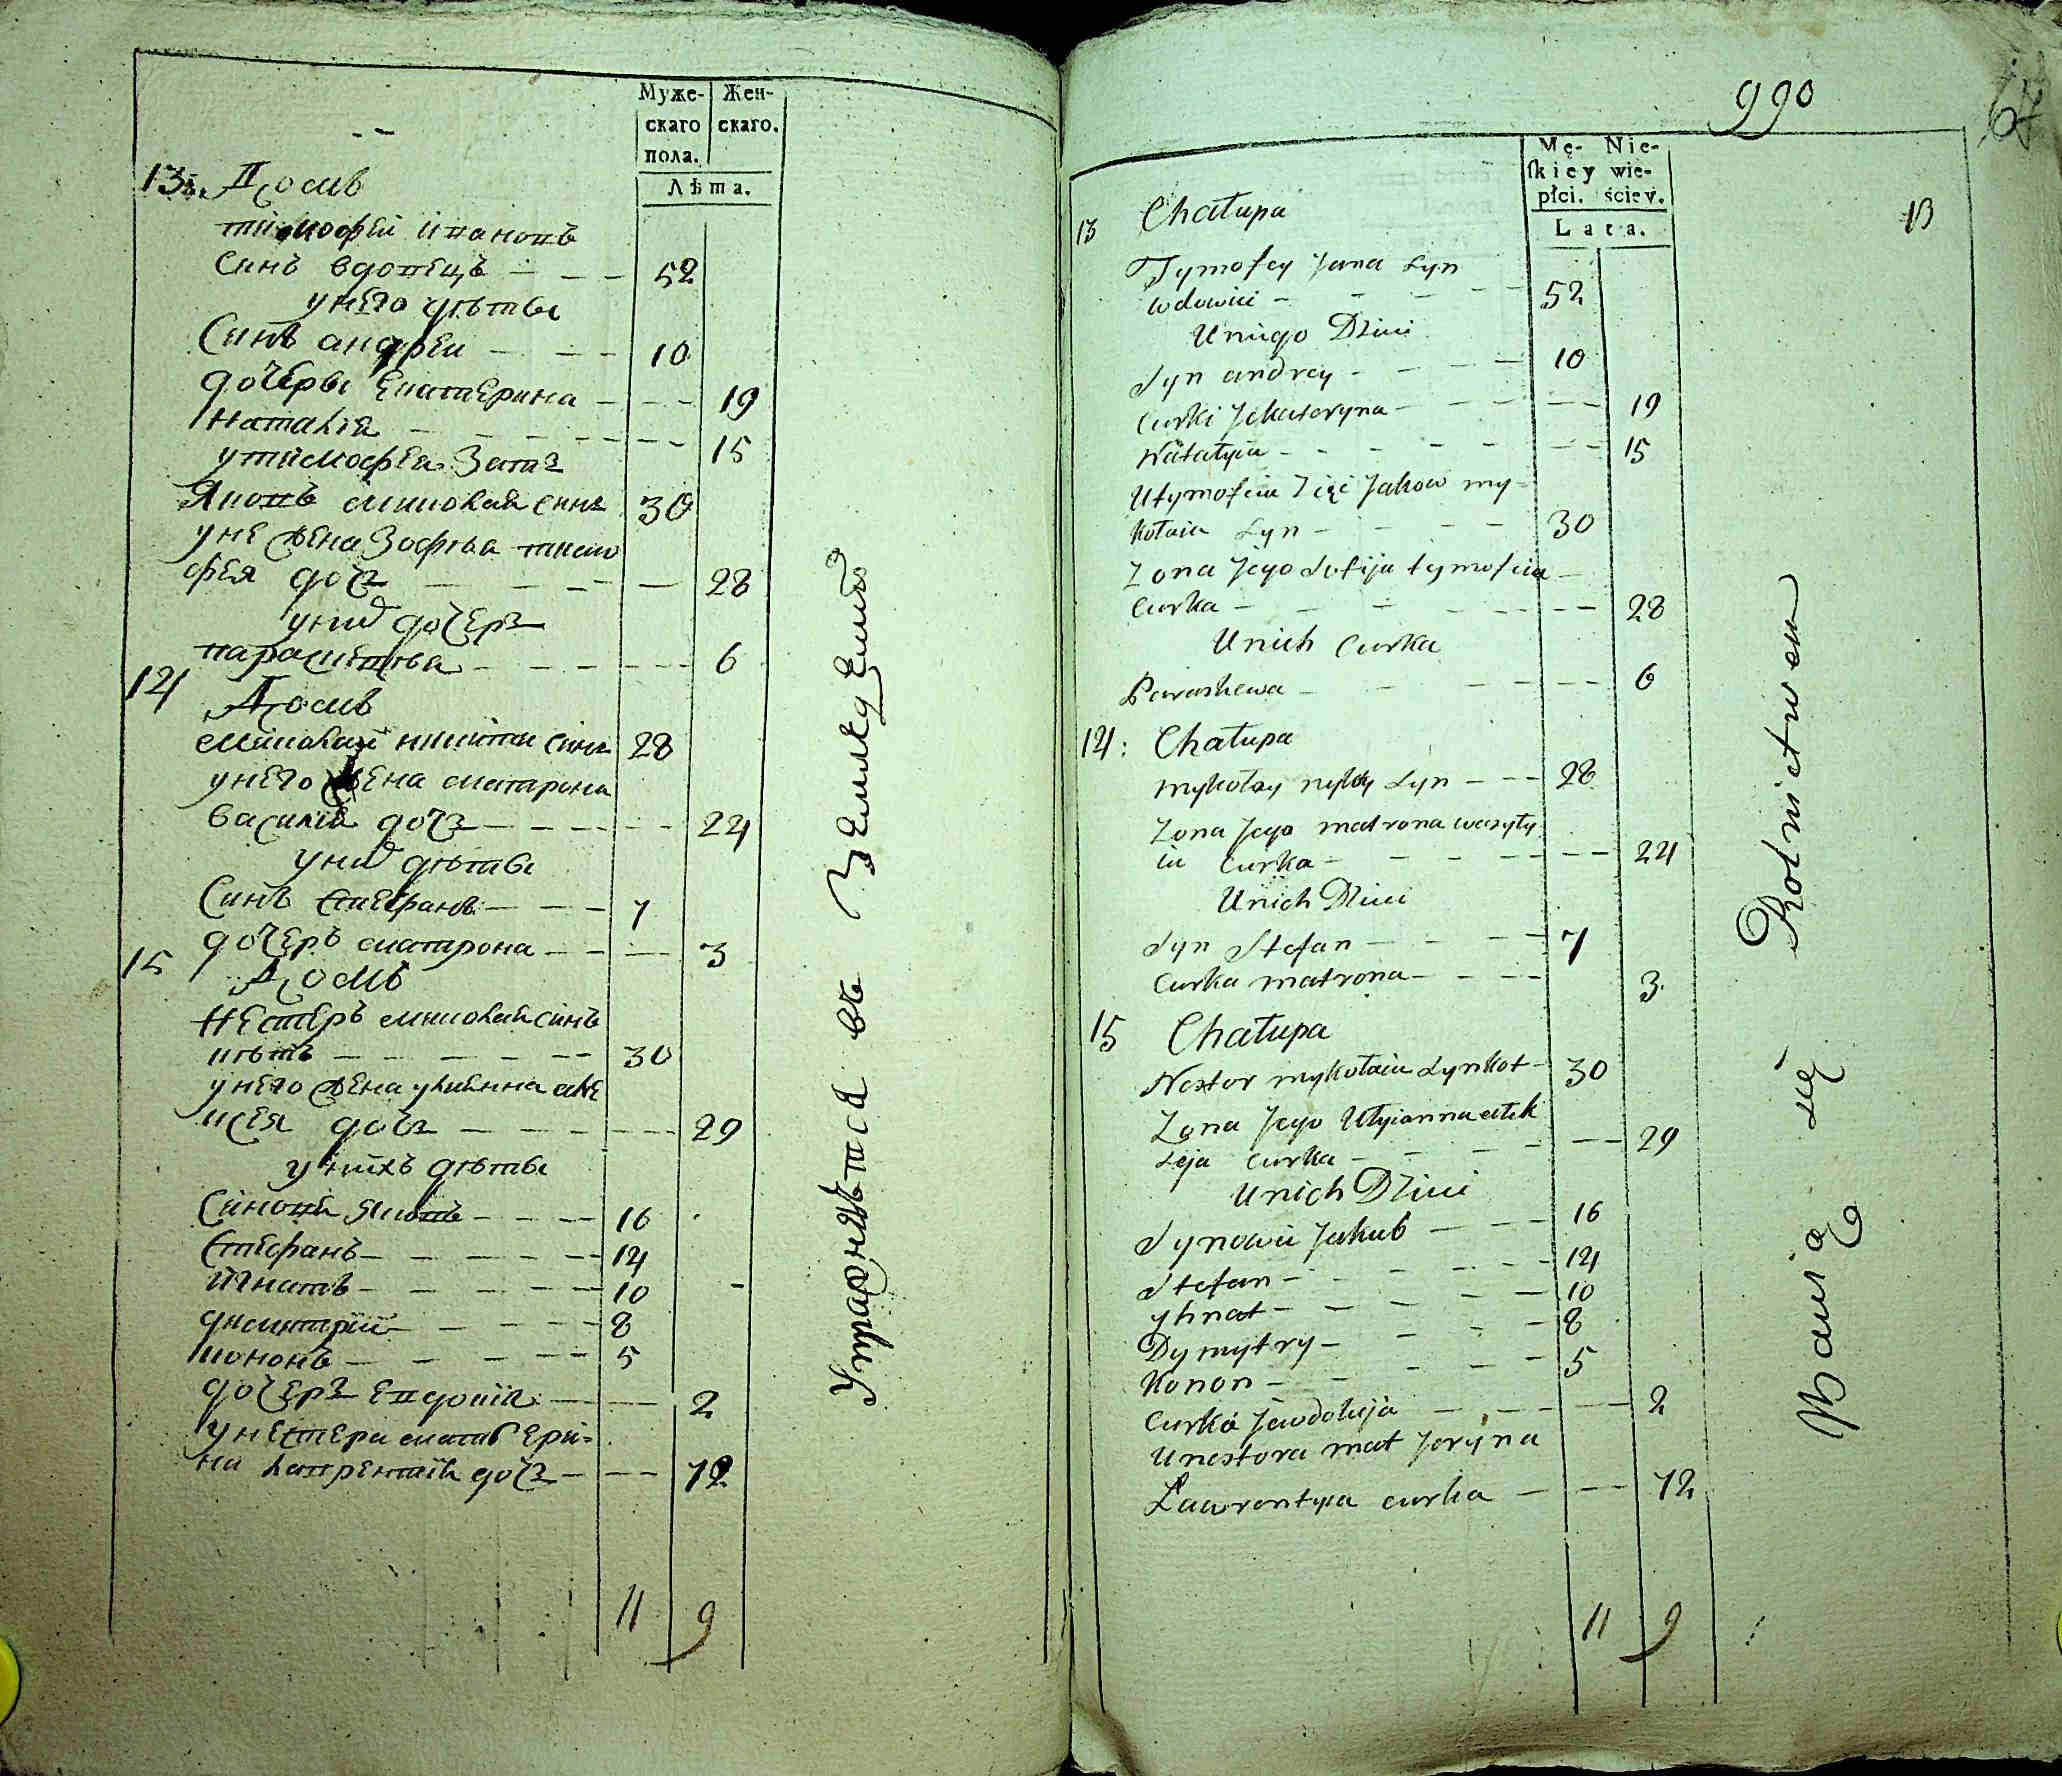 Муже- Жен-
скаго скаго.
пола.
Лѣта.
13. Домъ
тимофей ивановъ
синъ вдовецъ — — — 52
унего дѣты
Синъ андрей — — — 10
дочеры Екатерина — — — 19
Наталия — — — — — 15
утимофея Зять
Яковъ миколая синъ 30
уне жена Зофѣа тимо
фея дочь — — — — 28
уних дочерь
парасцевѣа — — — — — 6
14 Домъ
миколай никити синъ 28
унего жена матрона
василия дочь — — — — 24
уних дѣты
Синъ Стефанъ — — — 7
дочеръ матрона — — — 3
15 Домъ
Нестеръ миколая синъ
кѣтъ — — — — — 30
унего жена улиянна але
ксея дочь — — — — — 29
унихъ дѣты
Синови Яковъ — — — 16
Стефанъ — — — — — 14
Игнатъ — — — — — 10
дмитрий — — — — 8
кононъ — — — — — 5
дочерь Евдокия — — — 2
унестера мать Ери-
на лаврентия дочь — — — 72
11 9
Упражняѣтса въ Земледелии
990
67
Mę- Nie-
skiey wie-
płci. ściey.
Lata.
13
13 Chałupa
Tymofey Jana Syn
wdowiec — — — — 52
Uniego Dzieci
Syn andrey — — — — 10
Curki Jekateryna — — — — 19
Natalyia — — — — — 15
Utymofeia Zięć Jakow my-
kołaia Syn — — — — 30
Zona Jego Sofija tymofeia —
Curka — — — — — 28
Unich Curka
Paraskewa — — — — — 6
14: Chałupa
mykołay nykity Syn — — — 28
Zona Jego matrona wasyły
ia Curka — — — — — 24
Unich Dzieci
Syn Stefan — — — — 7
Curka matrona — — — — 3.
15 Chałupa
Nestor mykołaia Synkot — 30
Zona Jego Ulyianna alek
seja curka — — — — — 29
Unich Dzieci
Synowie Jakub — — — 16
Stefan — — — — — 14
yhnat — — — — — 10
Dymytry — — — — 8
Konon — — — — 5
Curka Jewdokija — — — — 2
Unestora mat Jeryna
Lawrentyia curka — — — 72
11 9
Bawią się Rolnictwem